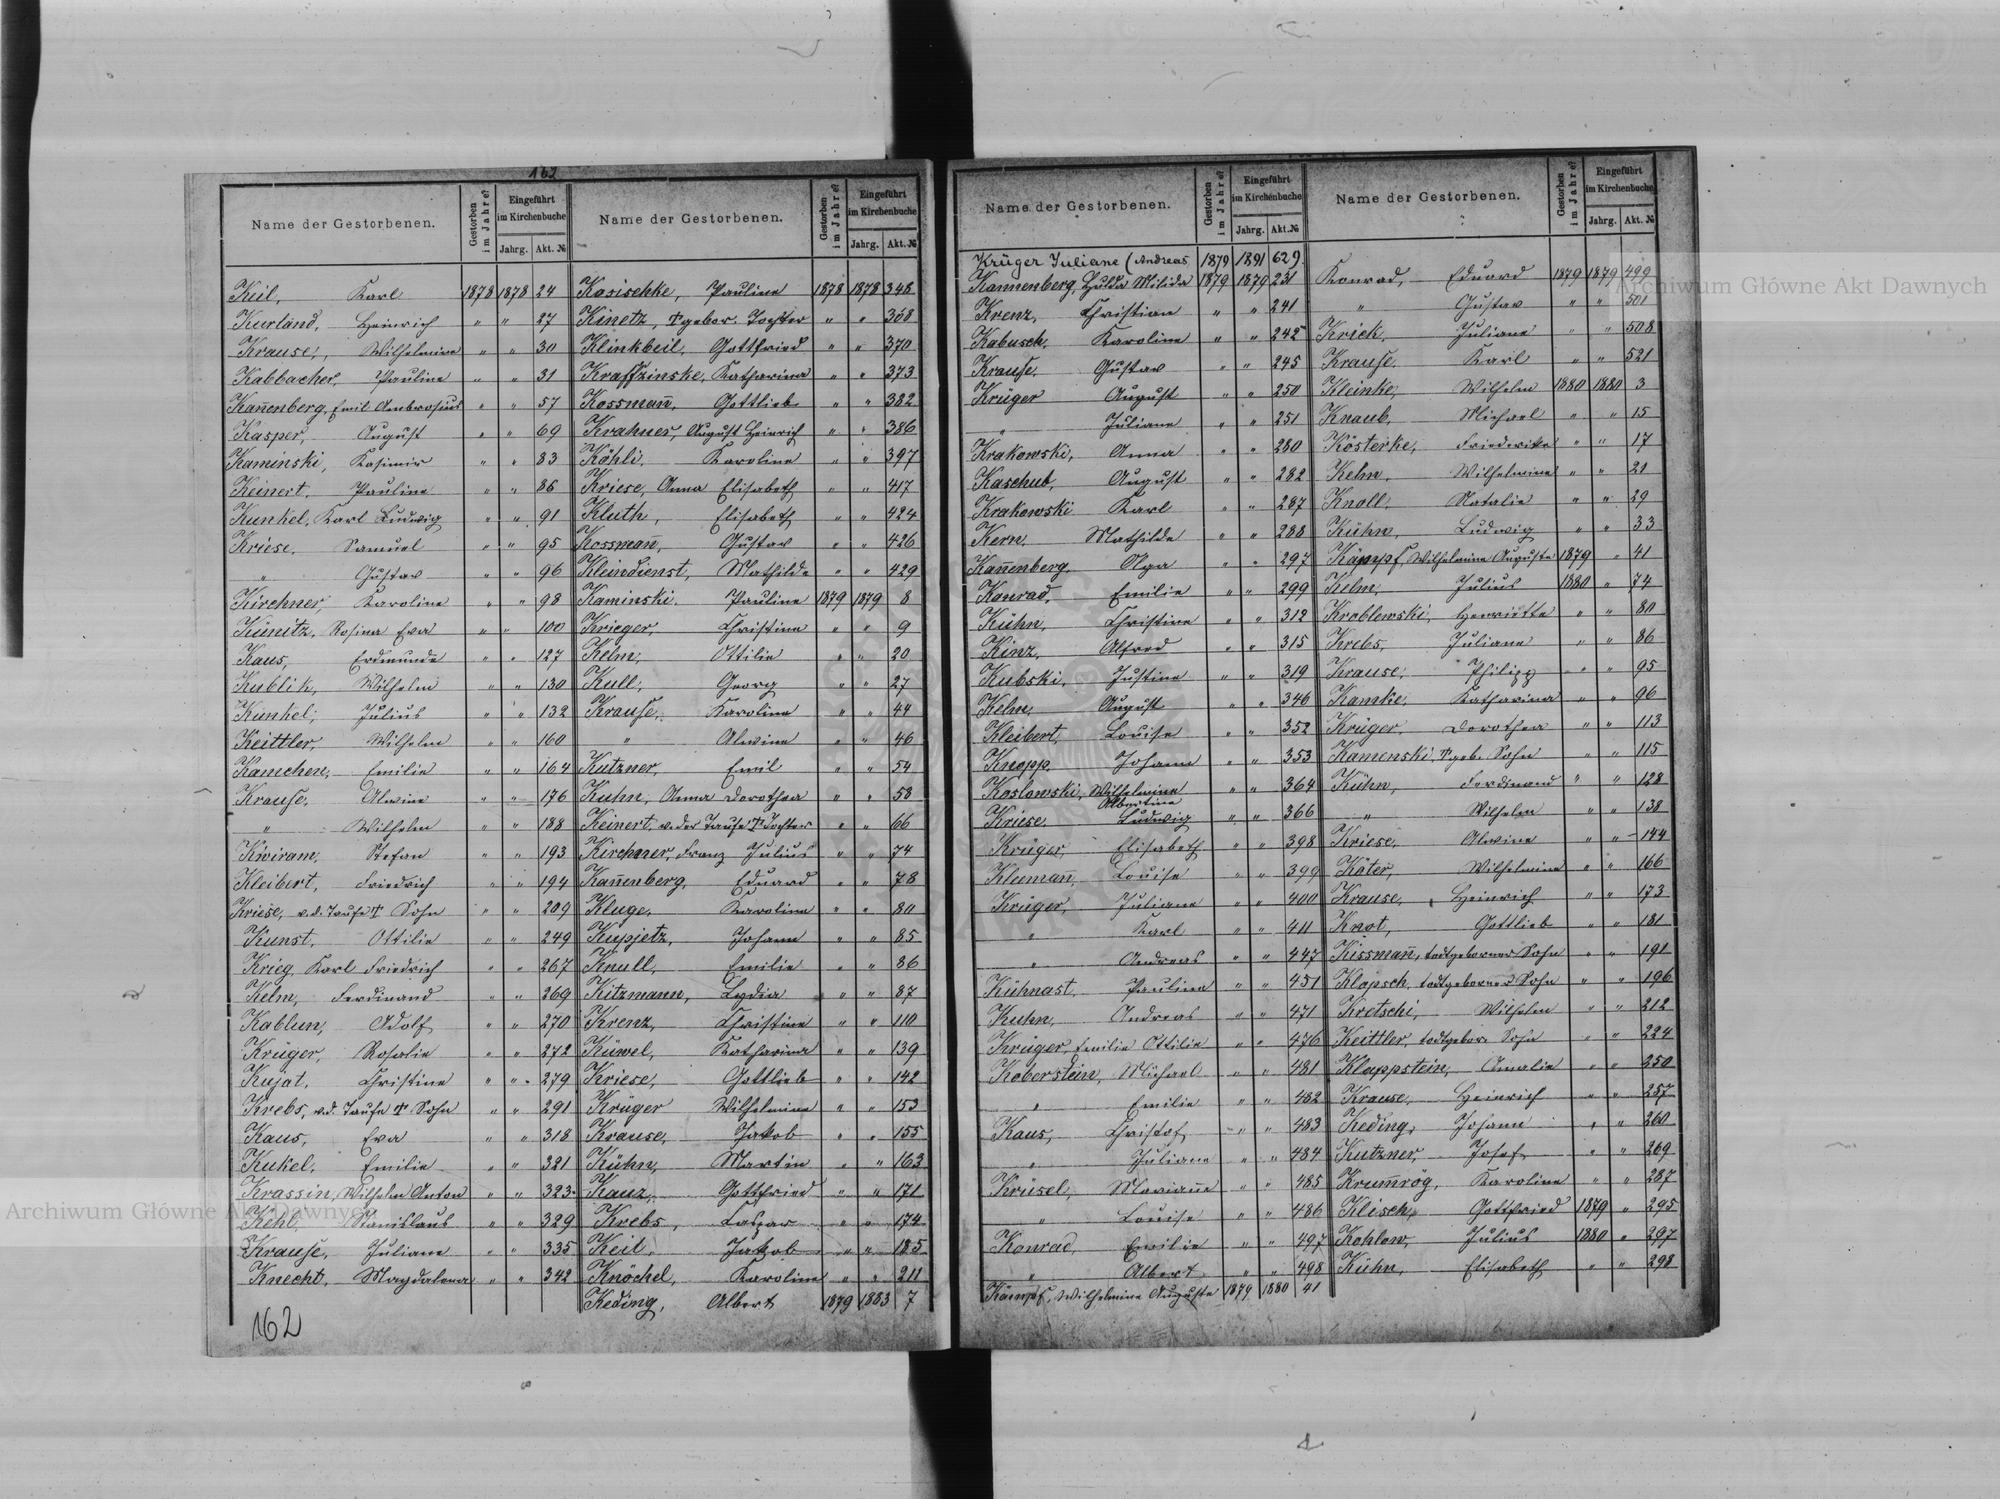 162
Name der Gestorbenen. Gestorben im Jahre? Eingeführt im Kirchenbuche Jahrg. Akt. №
Keil, Karl 1878 1878 24
Kurland, Heinrich " " 27
Krause, Wilhelmine " " 30
Kabbacher, Pauline " " 31
Kan̄enberg, Emil Ambrosius " " 57
Kasper, August " " 69
Kaminski, Kasimir " " 83
Keinert, Pauline " " 86
Kunkel, Karl Ludwig " " 91
Kriese, Samuel " " 95
" Gustav " " 96
Kirchner, Karoline " " 98
Künitz, Rosina Eva " " 100
Kaus, Erdmunde " " 127
Kublik, Wilhelm " " 130
Kunkel, Julius " " 132
Keittler, Wilhelm " " 160
Kamchen, Emilie " " 164
Krause, Alwine " " 176
" Wilhelm " " 188
Kwiram, Stefan " " 193
Kleibert, Friedrich " " 194
Kriese, v.d. Taufe † Sohn " " 209
Kunst, Ottilie " " 249
Krieg, Karl Friedrich " " 267
Kelm, Ferdinand " " 269
Kablun, Adolf " " 270
Krüger, Rosalie " " 272
Kujat, Christine " " 279
Krebs, v.d. Taufe † Sohn " " 291
Kaus, Eva " " 318
Kukel, Emilie " " 321
Krassin, Wilhelm Anton " " 323
Kehl, Stanislaus " " 329
Krause, Juliane " " 335
Knecht, Magdalena " " 342
162
Name der Gestorbenen. Gestorben im Jahre? Eingeführt im Kirchenbuche Jahrg. Akt. №
Kosischke, Pauline 1878 1878 348
Kinetz, † gebor. Tochter " " 368
Klinkbeil, Gottfried " " 370
Kraffzinske, Katharina " " 373
Kossman̄, Gottlieb " " 382
Krahner, August Heinrich " " 386
Köhli, Karoline " " 397
Kriese, Anna Elisabeth " " 417
Kluth, Elisabeth " " 424
Kossman̄, Gustav " " 426
Kleindienst, Mathilde " " 429
Kaminski, Pauline 1879 1879 8
Krieger, Christine " " 9
Kelm, Ottilie " " 20
Kull, Georg " " 27
Krause, Karoline " " 44
" Alwine " " 46
Kutzner, Emil " " 54
Kuhn, Anna Dorothea " " 58
Keinert, v. der Taufe † Tochter " " 66
Kirchner, Franz Julius " " 74
Kan̄enberg, Eduard " " 78
Kluge, Karoline " " 80
Kupjetz, Johann " " 85
Knull, Emilie " " 86
Kitzmann, Lydia " " 87
Krenz, Christine " " 110
Küwel, Katharina " " 139
Kriese, Gottlieb " " 142
Krüger Wilhelmine " " 153
Krause, Jakob " " 155
Kühn, Martin " " 163
Kauz, Gottfried " " 171
Krebs, Caspar " " 174
Keil, Jakob " " 185
Knöchel, Karoline " " 211
Keding, Albert 1879 1883 7
Name der Gestorbenen. Gestorben im Jahre? Eingeführt im Kirchenbuche Jahrg. Akt. №
Krüger Juliane (Andreas 1879 1891 629
Kannenberg, Hulda Milida 1879 1879 231
Krenz, Christian " " 241
Kabusch, Karoline " " 242
Krause, Gustav " " 245
Krüger August " " 250
" Juliane " " 251
Krakowski, Anna " " 280
Kaschub, August " " 282
Krakowski Karl " " 287
Kern, Mathilde " " 288
Kan̄enberg, Olga " " 297
Konrad, Emilie " " 299
Kühn, Christine " " 312
Kinz, Alfred " " 315
Kubski, Justine " " 319
Kelm, August " " 346
Kleibert, Louise " " 352
Knopp, Johann " " 353
Koslowski, Wilhelmine Albertine " " 364
Kriese, Ludwig " " 366
Krüger, Elisabeth " " 398
Kleman̄, Louise " " 399
Krüger, Juliane " " 400
" Karl " " 411
" Andreas " " 447
Kühnast, Pauline " " 451
Kuhn, Andreas " " 471
Krüger, Emilie Ottilie " " 476
Koberstein, Michael " " 481
" Emilie " " 482
Kaus, Christof " " 483
" Juliane " " 484
Krüsel, Marian̄e " " 485
" Louise " " 486
Konrad, Emilie " " 497
" Albert " " 498
Kämpf, Wilhelmine Auguste 1879 1880 41
Name der Gestorbenen. Gestorben im Jahre? Eingeführt im Kirchenbuche Jahrg. Akt. №
Konrad, Eduard 1879 1879 499
" Gustav " " 501
Krick, Juliane " " 508
Krause, Karl " " 521
Kleinke, Wilhelm 1880 1880 3
Knaub, Michael " " 15
Kösterke, Friederike " " 17
Kelm, Wilhelmine " " 21
Knoll, Natalie " " 29
Kühn, Ludwig " " 33
Kämpf, Wilhelmine Auguste 1879 " 41
Kelm, Julius 1880 " 74
Kroblewski, Henriette " " 80
Krebs, Juliane " " 86
Krause, Philipp " " 95
Kamke, Katharina " " 96
Krüger, Dorothea " " 113
Kamenski, † geb. Sohn " " 115
Kühn, Ferdinand " " 128
" Wilhelm " " 138
Kriese, Alwine " " 144
Köter, Wilhelmine " " 166
Krause, Heinrich " " 173
Knot, Gottlieb " " 181
Kissman̄, todtgeborner Sohn " " 191
Klopsch, todtgeborner Sohn " " 196
Kretschi, Wilhelm " " 212
Keittler, todtgebor. Sohn " " 224
Klappstein, Amalie " " 250
Krause, Heinrich " " 257
Keding, Johann " " 260
Kutzner, Josef " " 269
Krum̄rög, Karoline " " 287
Klisch, Gottfried 1879 " 295
Kohlow, Julius 1880 " 297
Kühn, Elisabeth " " 298
Archiwum Główne Akt Dawnych
Archiwum Główne Akt Dawnych